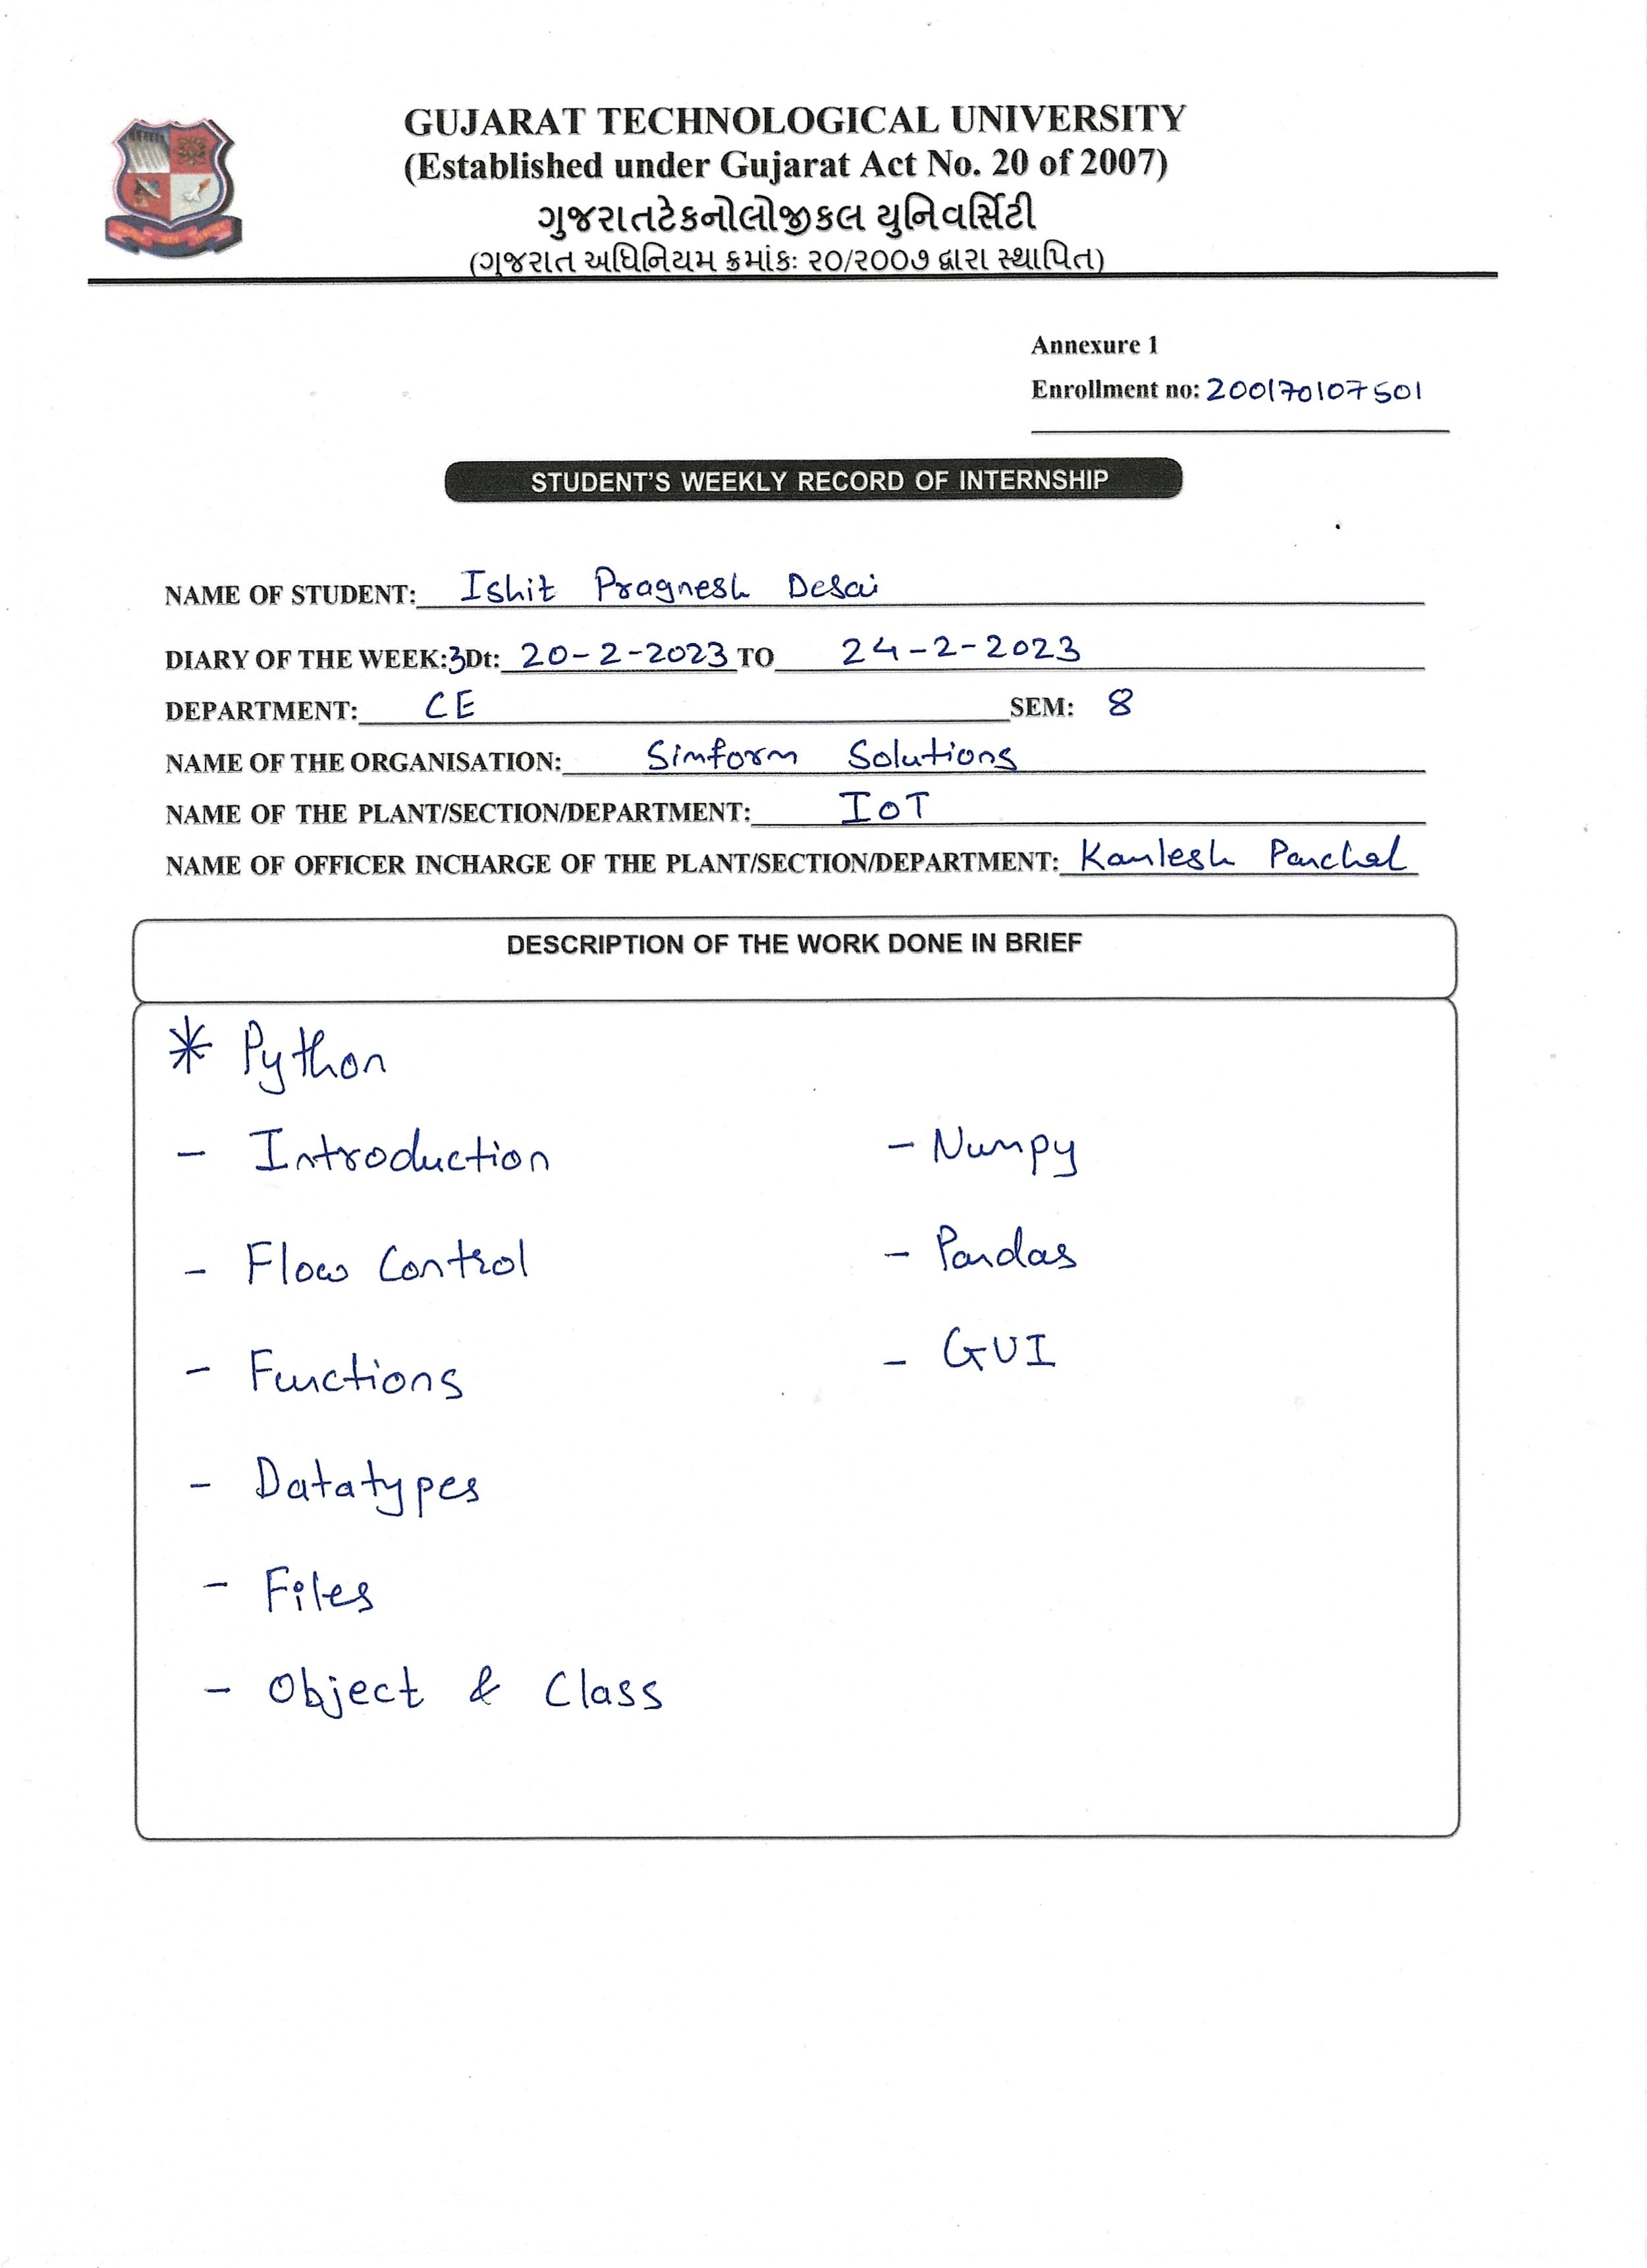 GUJARAT TECHNOLOGICAL UNIVERSITY
(Established under Gujarat Act No. 20 of 2007)
ગુજરાતટેકનોલોજીકલ યુનિવર્સિટી
(ગુજરાત અધિનિયમ ક્રમાંકઃ ૨૦/૨૦૦૭ દ્વારા સ્થાપિત)
Annexure 1
Enrollment no: 200170107501
STUDENT'S WEEKLY RECORD OF INTERNSHIP
NAME OF STUDENT: Ishit Pragnesh Desai
DIARY OF THE WEEK:3Dt: 20-2-2023 TO 24-2-2023
DEPARTMENT: CE SEM: 8
NAME OF THE ORGANISATION: Simform Solutions
NAME OF THE PLANT/SECTION/DEPARTMENT: IoT
NAME OF OFFICER INCHARGE OF THE PLANT/SECTION/DEPARTMENT: Kamlesh Panchal
DESCRIPTION OF THE WORK DONE IN BRIEF
* Python
- Introduction
- Flow Control
- Functions
- Datatypes
- Files
- Object & Class
- Numpy
- Pandas
- GUI